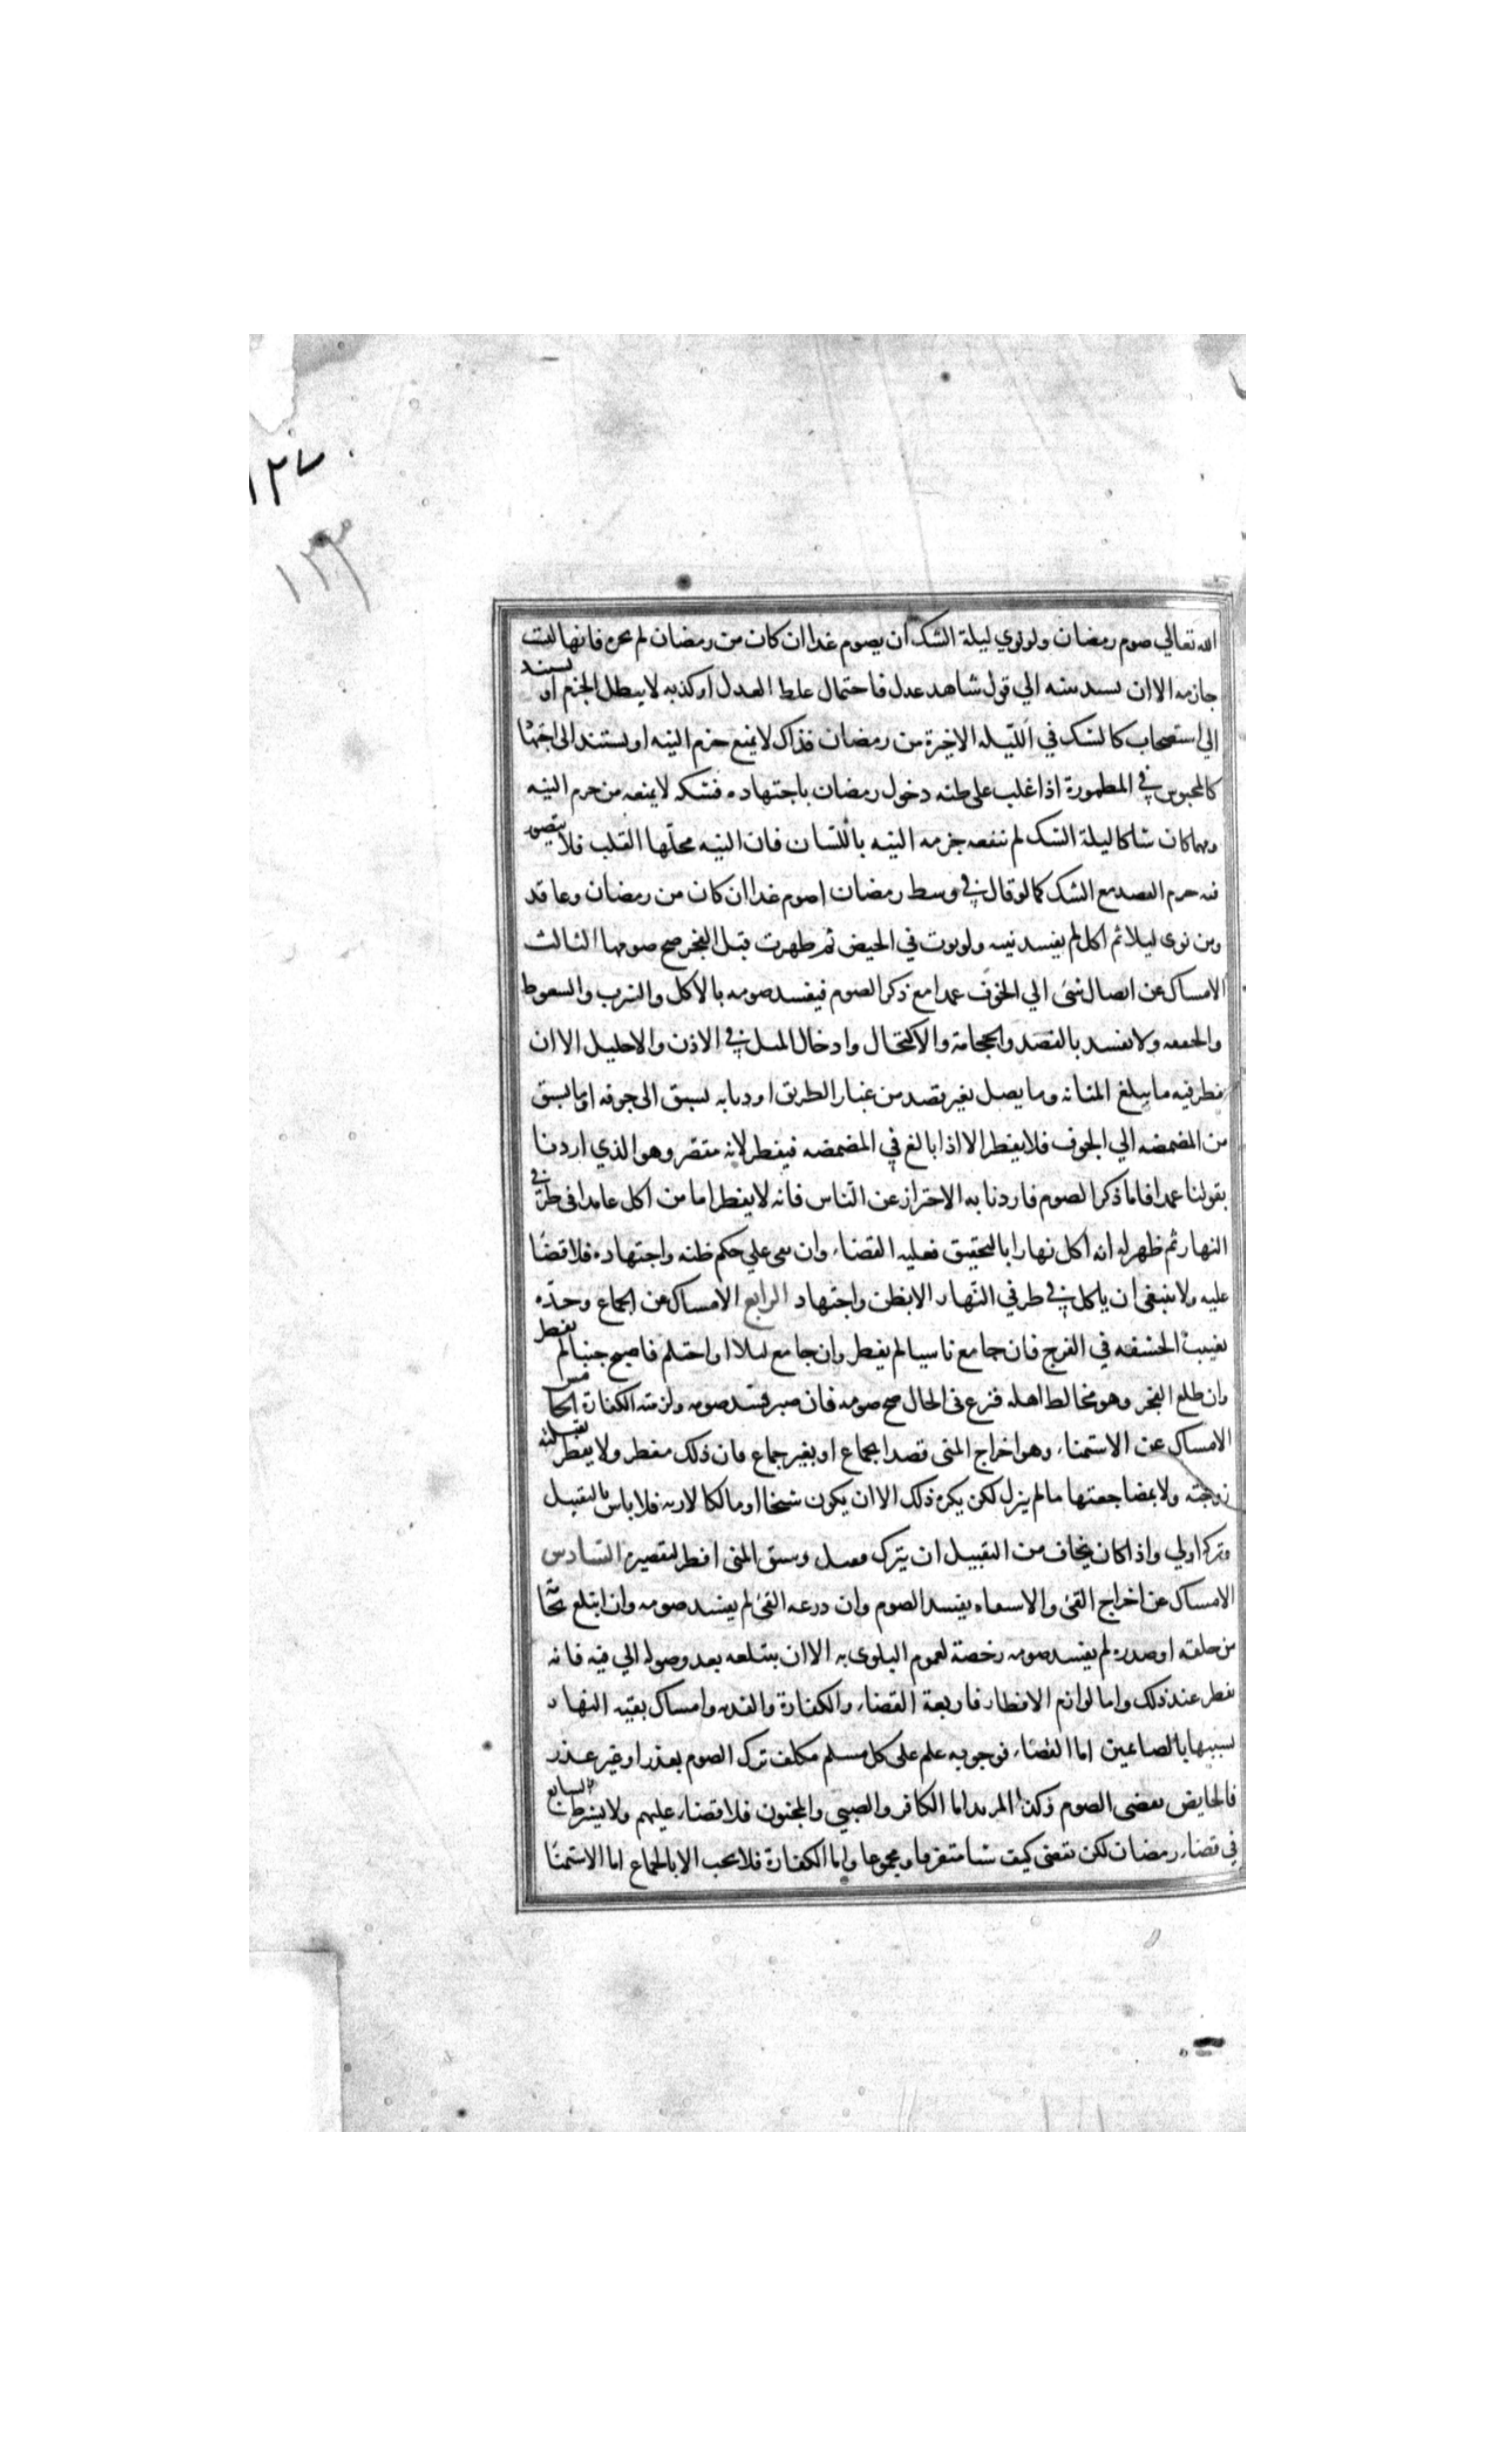 ١٢٧
١٢٣
الله تعالي صوم رمضان ولو نوي ليلة الشك ان يصوم غدا ان كان من رمضان لم يجزه فانها ليست
جازمه الا ان تستند نيته الي قول شاهد عدل فاحتمال غلط العدل او كذبه لا يبطل الجزم او يستند
الي استصحاب كالشك في الليله الاخيرة من رمضان فذاك لا يمنع جزم النيه او يستند الى اجتهاد
كالمحبوس في المطمورة اذا غلب على ظنه دخول رمضان باجتهاده فشكه لا يمنعه من جزم النيه
ومهما كان شاكا ليلة الشك لم ينفعه جزمه النيه باللسان فان النيه محلها القلب فلا يتصور
فيه جزم القصد مع الشك كما لو قال في وسط رمضان اصوم غدا ان كان من رمضان
ومن نوى ليلا ثم اكل لم يفسد نيته ولو نوت في الحيض ثم طهرت قبل الفجر صح صومها الثالث
الامساك عن ايصال شئ الي الجوف عمدا مع ذكر الصوم فيفسد صومه بالاكل والشرب والسعوط
والحقنه ولا يفسد بالفصد والحجامة والاكتحال وادخال الميل في الاذن والاحليل الا ان
يقطر فيه ما يبلغ المثانه وما يصل بغير قصد من غبار الطريق او ذبابه تسبق الى جوفه او ما يسبق
من المضمضه الي الجوف فلا يفطر الا اذا بالغ في المضمضه فيفطر لانه مقصر وهو الذي اردنا
بقولنا عمدا فاما ذكر الصوم فاردنا به الاحتراز عن الناس فانه لا يفطر اما من اكل عامدا في طرفي
النهار ثم ظهر له انه اكل نهارا بالتحقيق فعليه القضاء وان بقى علي حكم ظنه واجتهاده فلا قضا
عليه ولا ينبغى ان ياكل في طرفي النهار الا بظن واجتهاد الرابع الامساك عن الجماع وحده
تغييب الحشفه في الفرج فان جامع ناسيا لم يفطر وان جامع ليلا او احتلم فاصبح جنبا لم يفطر
وان طلع الفجر وهو مخالط اهله فنزع فى الحال صح صومه فان صبر فسد صومه ولزمته الكفارة الخامس
الامساك عن الاستمناء وهو اخراج المنى قصدا بجماع او بغير جماع فان ذلك مفطر ولا يفطر بقبلته
زوجته ولا بمضاجعتها ما لم ينزل لكن يكره ذلك الا ان يكون شيخا او مالكا لاربه فلا باس بالتقبيل
وتركه اولي واذا كان يخاف من التقبيل ان ينزل فقبل وسبق المنى افطر لتقصيره السادس
الامساك عن اخراج القئ والاستقاء يفسد الصوم وان ذرعه القئ لم يفسد صومه وان ابتلع نخامة
من حلقه او صدره لم يفسد صومه رخصة لعموم البلوى به الا ان يبتلعه بعد وصوله الي فيه فانه
يفطر عند ذلك واما لوازم الافطار فاربعة القضاء والكفارة والفديه وامساك بقيه النهار
تشبيها بالصائمين اما القضاء فوجوبه على كل مسلم مكلف ترك الصوم بعذر او غير عذر
فالحايض تقضى الصوم وكذا المرتد اما الكافر والصبي والمجنون فلا قضاء عليهم ولا يشترط التتابع
في قضاء رمضان لكن تقضى كيف شا متفرقا ومجموعا واما الكفارة فلا يجب الا بالجماع اما الاستمنا